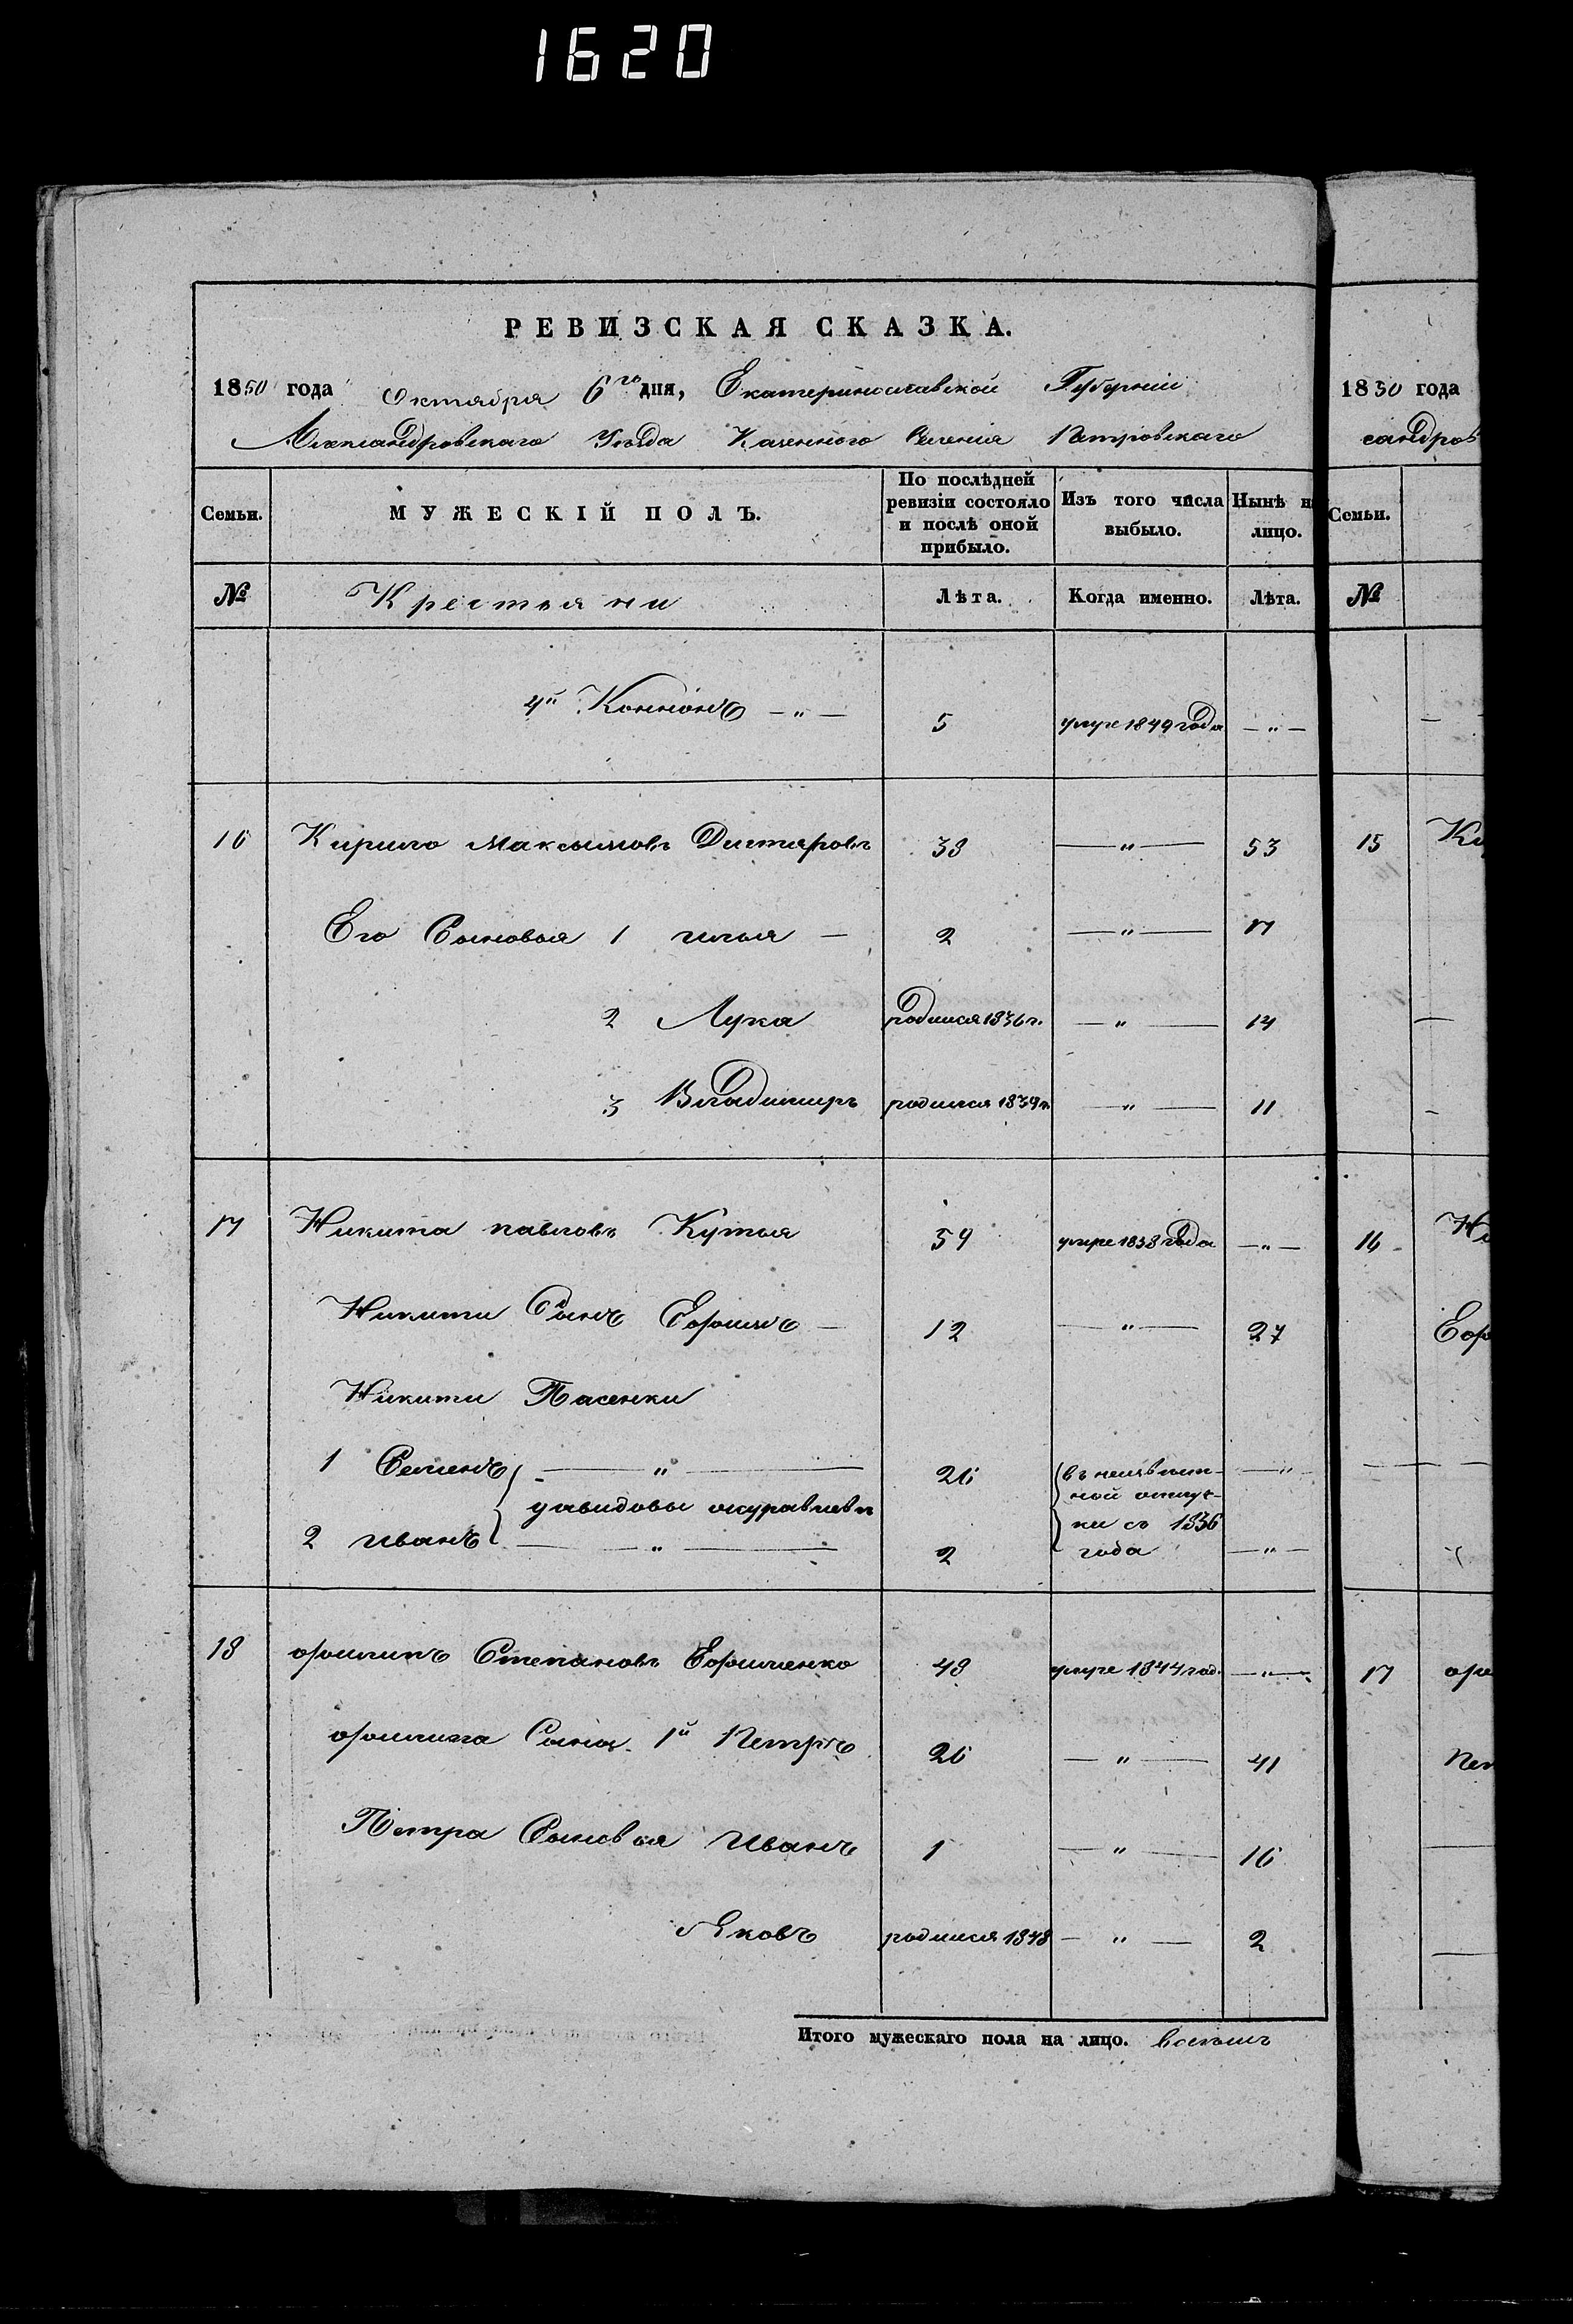 1620
РЕВИЗСКАЯ СКАЗКА.
1850 года Октября 6го дня, Екатеринославской Губерніи
Александровскаго Уезда Казенного Селенія Петровскаго
Семьи. МУЖЕСКІЙ ПОЛЪ. По послѣдней ревизіи состояло и послѣ оной прибыло. Изъ того числа выбыло. Нынѣ на лицо.
№ Крестьяни Лѣта. Когда именно. Лѣта.
4й Коннонъ — " — 5 умре 1849 года — " —
16 Кирило Максимовъ Дегтяровъ 38 — " — 53
Его Сыновья 1 илья — 2 — " — 17
2 Лука родился 1836 г. — " — 14
3 Владимиръ родился 1839 г. — " — 11
17 Никита павловъ Кутья 59 умре 1838 года — " —
Никити Сынъ Ефимъ — 12 — " — 27
Никити Пасенки
1 Семенъ — " — 26 въ неизвест- — " —
ной отлуч-
ки съ 1836
2 иванъ — " — 2 года — " —
18 филипъ Степановъ Ефименко 48 умре 1844 год. — " —
филипа Сынъ 1й Петръ 26 — " — 41
Петра Сыновья иванъ 1 — " — 16
Яковъ родился 1848 — " — 2
Итого мужескаго пола на лицо. восемь
1850 года
сандров
Семьи.
№
15 Ки
16 Ни
Ефи
17 фи
Пет